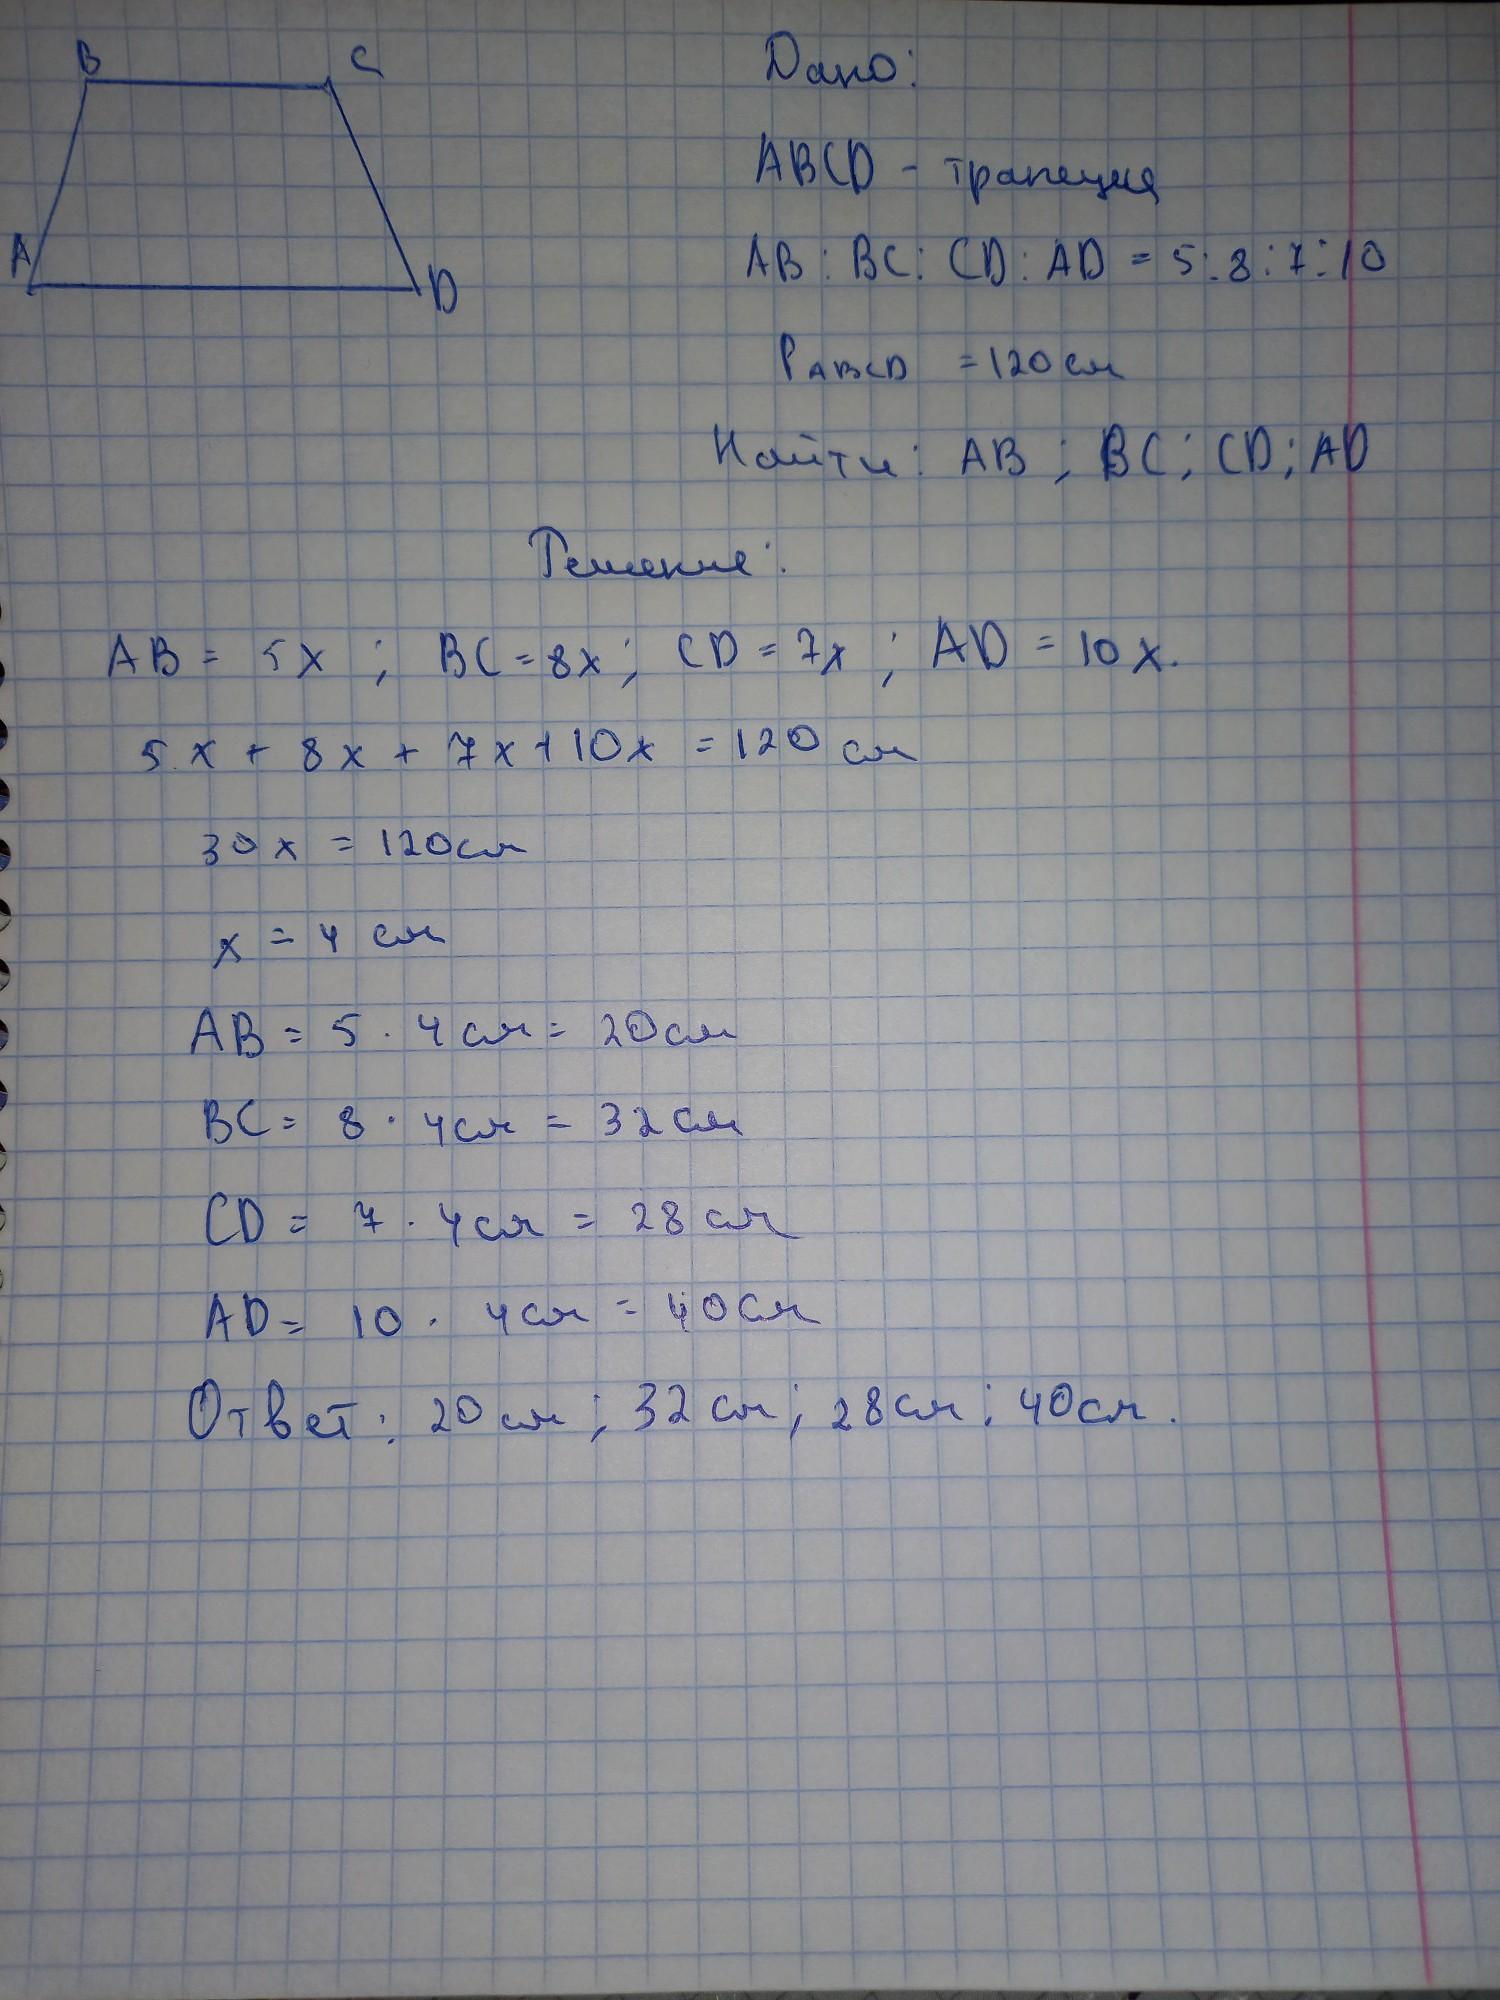 B C
Дано:
ABCD - трапеция
A D
AB : BC : CD : AD = 5:8:7:10
PABCD = 120 см
Найти: AB ; BC ; CD ; AD
Решение:
AB = 5x ; BC = 8x ; CD = 7x ; AD = 10x.
5x + 8x + 7x + 10x = 120 см
30x = 120 см
x = 4 см
AB = 5 · 4 см = 20 см
BC = 8 · 4 см = 32 см
CD = 7 · 4 см = 28 см
AD = 10 · 4 см = 40 см
Ответ: 20 см ; 32 см ; 28 см ; 40 см.